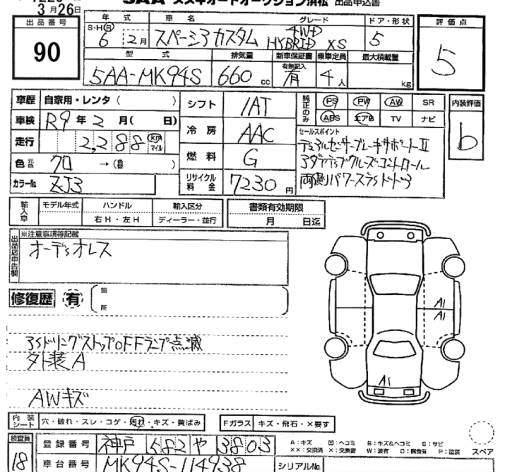 3月26日
SAA スズキオートオークション浜松 出品申込書
出品番号
90
年式 車名 グレード ドア・形状
S・H・R 6年2月 スペーシアカスタム 4WD HYBRID XS 5
型式 排気量 新車保証書 乗車定員 最大積載量
5AA-MK94S 660 cc 有無記入 有 4人 kg
評価点
5
車歴 自家用・レンタ( )
車検 R9年2月( 日)
走行 2,288 km マイル
色 クロ →( 色)
カラーNo ZJ3
シフト IAT
冷房 AAC
燃料 G
リサイクル料金 7230円
純正のみ PS PW AW SR
ABS エアB TV ナビ
内装評価
b
セールスポイント
デュアルセンサーブレーキサポートⅡ
アダプティブクルーズコントロール
両側パワースライドドア
輸入車 モデル年式 ハンドル 輸入区分
右H・左H ディーラー・並行
書類有効期限
月 日迄
出品店申告欄
※注意事項等記載
オーディオレス
修復歴 有
箇所
ISドリングストップOFFランプ点滅
外装A
AWキズ
A1
A1
A1
内装シート 穴・破れ・スレ・コゲ・汚れ・キズ・黄ばみ
Fガラス キズ・飛石・×要す
検査員
18
登録番号 神戸 582 や 3803
車台番号 MK94S-114938
シリアルNo.
A:キズ U:ヘコミ B:キズ&ヘコミ S:サビ
スペア